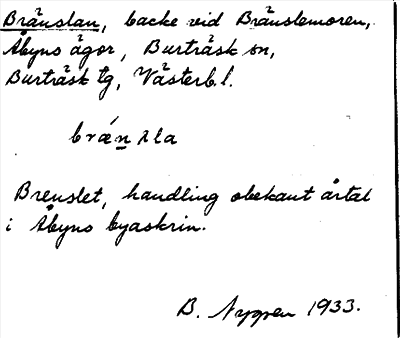 Bränslan, backe vid Bränslemoren,
Åbyns ägor, Burträsk sn,
Burträsk tg, Västerb. l.
brǽn̲ʌla
Brenslet, handling obekant årtal
i Åbyns byaskrin.
B. Nygren 1933.